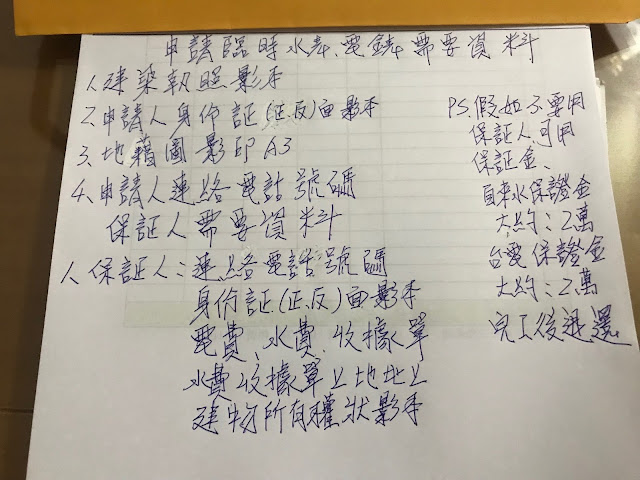 申請臨時水錶、電錶需要資料
1.建築執照影本
2.申請人身份証(正.反)面影本
3.地籍圖影印A3
4.申請人連絡電話號碼
保証人需要資料
1.保証人:連絡電話號碼
身份証(正.反)面影本
電費、水費.收據單
水費收據單上地址上
建物所有權狀影本
PS.假如不要用
保証人.可用
保証金、
自來水保證金
大約:2萬
台電保證金
大約:2萬
完工後退還